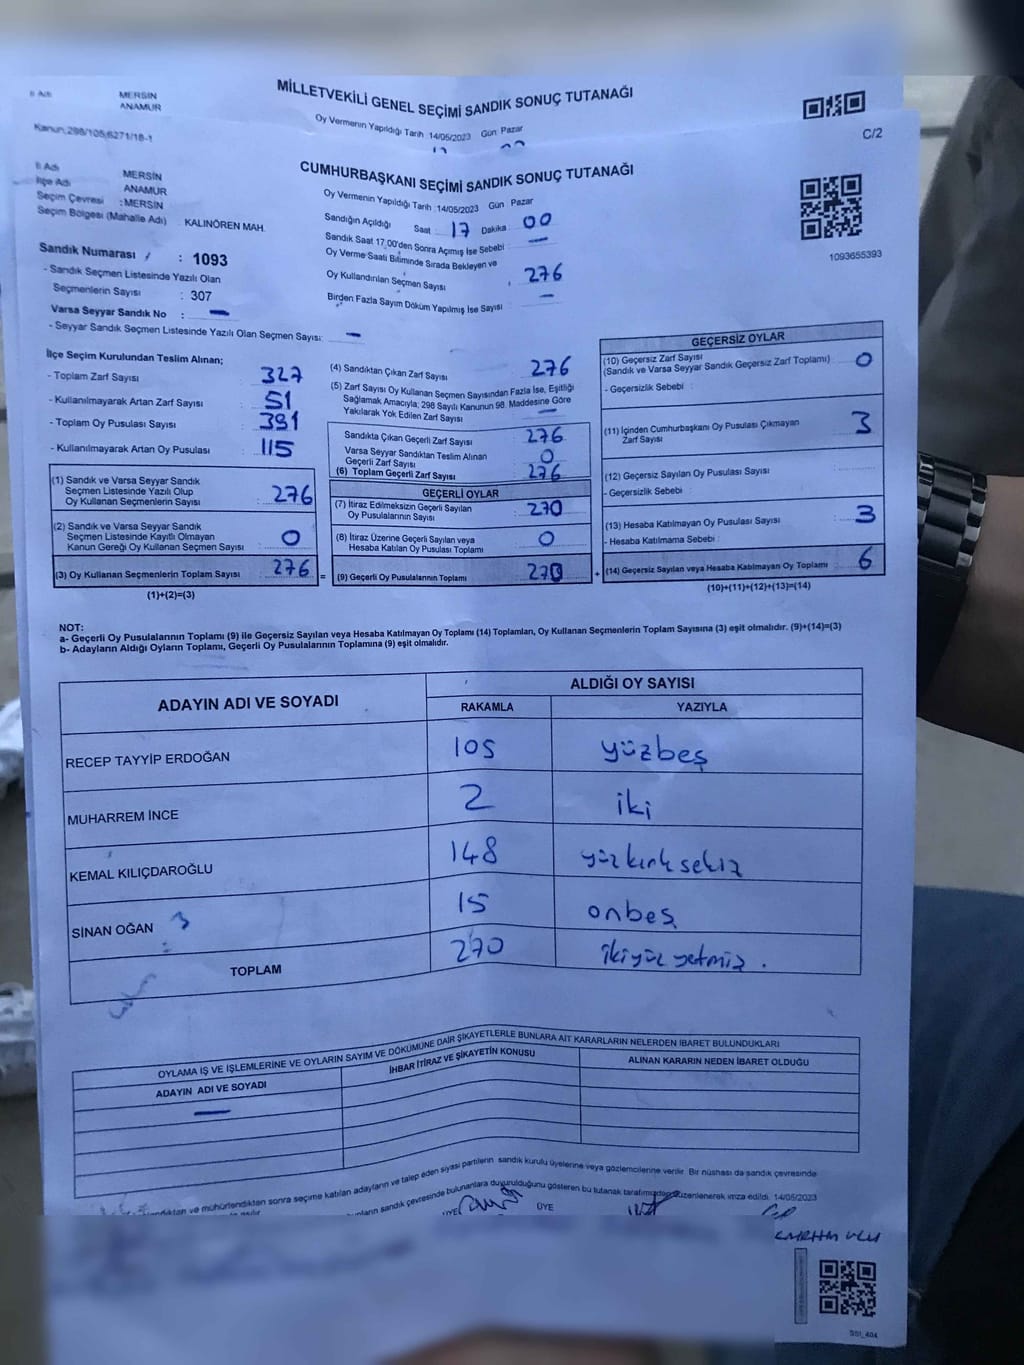 İl Adı MERSİN
ANAMUR
MİLLETVEKİLİ GENEL SEÇİMİ SANDIK SONUÇ TUTANAĞI
Oy Vermenin Yapıldığı Tarih 14/05/2023 Gün Pazar
Kanun;298/105;6271/18-1
C/2
İl Adı MERSİN
İlçe Adı ANAMUR
Seçim Çevresi : MERSİN
Seçim Bölgesi (Mahalle Adı) KALINÖREN MAH.
CUMHURBAŞKANI SEÇİMİ SANDIK SONUÇ TUTANAĞI
Oy Vermenin Yapıldığı Tarih :14/05/2023 Gün : Pazar
Sandığın Açıldığı Saat 17 Dakika 00
Sandık Saat 17.00'den Sonra Açımış İse Sebebi : —
Oy Verme Saati Bitiminde Sırada Bekleyen ve
Oy Kullandırılan Seçmen Sayısı : 276
Birden Fazla Sayım Döküm Yapılmış İse Sayısı : —
1093655393
Sandık Numarası : 1093
- Sandık Seçmen Listesinde Yazılı Olan
Seçmenlerin Sayısı : 307
Varsa Seyyar Sandık No : —
- Seyyar Sandık Seçmen Listesinde Yazılı Olan Seçmen Sayısı: —
İlçe Seçim Kurulundan Teslim Alınan;
- Toplam Zarf Sayısı : 327
- Kullanılmayarak Artan Zarf Sayısı : 51
- Toplam Oy Pusulası Sayısı : 391
- Kullanılmayarak Artan Oy Pusulası : 115
(1) Sandık ve Varsa Seyyar Sandık
Seçmen Listesinde Yazılı Olup
Oy Kullanan Seçmenlerin Sayısı : 276
(2) Sandık ve Varsa Seyyar Sandık
Seçmen Listesinde Kayıtlı Olmayan
Kanun Gereği Oy Kullanan Seçmen Sayısı : 0
(3) Oy Kullanan Seçmenlerin Toplam Sayısı : 276 =
(1)+(2)=(3)
(4) Sandıktan Çıkan Zarf Sayısı : 276
(5) Zarf Sayısı Oy Kullanan Seçmen Sayısından Fazla İse, Eşitliği
Sağlamak Amacıyla; 298 Sayılı Kanunun 98. Maddesine Göre
Yakılarak Yok Edilen Zarf Sayısı : —
Sandıkta Çıkan Geçerli Zarf Sayısı : 276
Varsa Seyyar Sandıktan Teslim Alınan
Geçerli Zarf Sayısı : 0
(6) Toplam Geçerli Zarf Sayısı : 276
GEÇERLİ OYLAR
(7) İtiraz Edilmeksizin Geçerli Sayılan
Oy Pusulalarının Sayısı : 270
(8) İtiraz Üzerine Geçerli Sayılan veya
Hesaba Katılan Oy Pusulası Toplamı : 0
(9) Geçerli Oy Pusulalarının Toplamı : 270 +
GEÇERSİZ OYLAR
(10) Geçersiz Zarf Sayısı
(Sandık ve Varsa Seyyar Sandık Geçersiz Zarf Toplamı) 0
- Geçersizlik Sebebi :
(11) İçinden Cumhurbaşkanı Oy Pusulası Çıkmayan
Zarf Sayısı : 3
(12) Geçersiz Sayılan Oy Pusulası Sayısı :
- Geçersizlik Sebebi :
(13) Hesaba Katılmayan Oy Pusulası Sayısı : 3
- Hesaba Katılmama Sebebi :
(14) Geçersiz Sayılan veya Hesaba Katılmayan Oy Toplamı : 6
(10)+(11)+(12)+(13)=(14)
NOT:
a- Geçerli Oy Pusulalarının Toplamı (9) ile Geçersiz Sayılan veya Hesaba Katılmayan Oy Toplamı (14) Toplamları, Oy Kullanan Seçmenlerin Toplam Sayısına (3) eşit olmalıdır. (9)+(14)=(3)
b- Adayların Aldığı Oyların Toplamı, Geçerli Oy Pusulalarının Toplamına (9) eşit olmalıdır.
ADAYIN ADI VE SOYADI
ALDIĞI OY SAYISI
RAKAMLA YAZIYLA
RECEP TAYYİP ERDOĞAN 105 yüzbeş
MUHARREM İNCE 2 iki
KEMAL KILIÇDAROĞLU 148 yüz kırk sekiz
SİNAN OĞAN 15 onbeş
TOPLAM 270 ikiyüz yetmiz .
OYLAMA İŞ VE İŞLEMLERİNE VE OYLARIN SAYIM VE DÖKÜMÜNE DAİR ŞİKAYETLERLE BUNLARA AİT KARARLARIN NELERDEN İBARET BULUNDUKLARI
ADAYIN ADI VE SOYADI İHBAR İTİRAZ VE ŞİKAYETİN KONUSU ALINAN KARARIN NEDEN İBARET OLDUĞU
—
ve mühürlendikten sonra seçime katılan adayların ve talep eden siyasi partilerin sandık kurulu üyelerine veya gözlemcilerine verilir. Bir nüshası da sandık çevresinde
sandık çevresinde bulunanlara duyurulduğunu gösteren bu tutanak tarafımızdan düzenlenerek imza edildi. 14/05/2023
ÜYE ÜYE
SSI_404